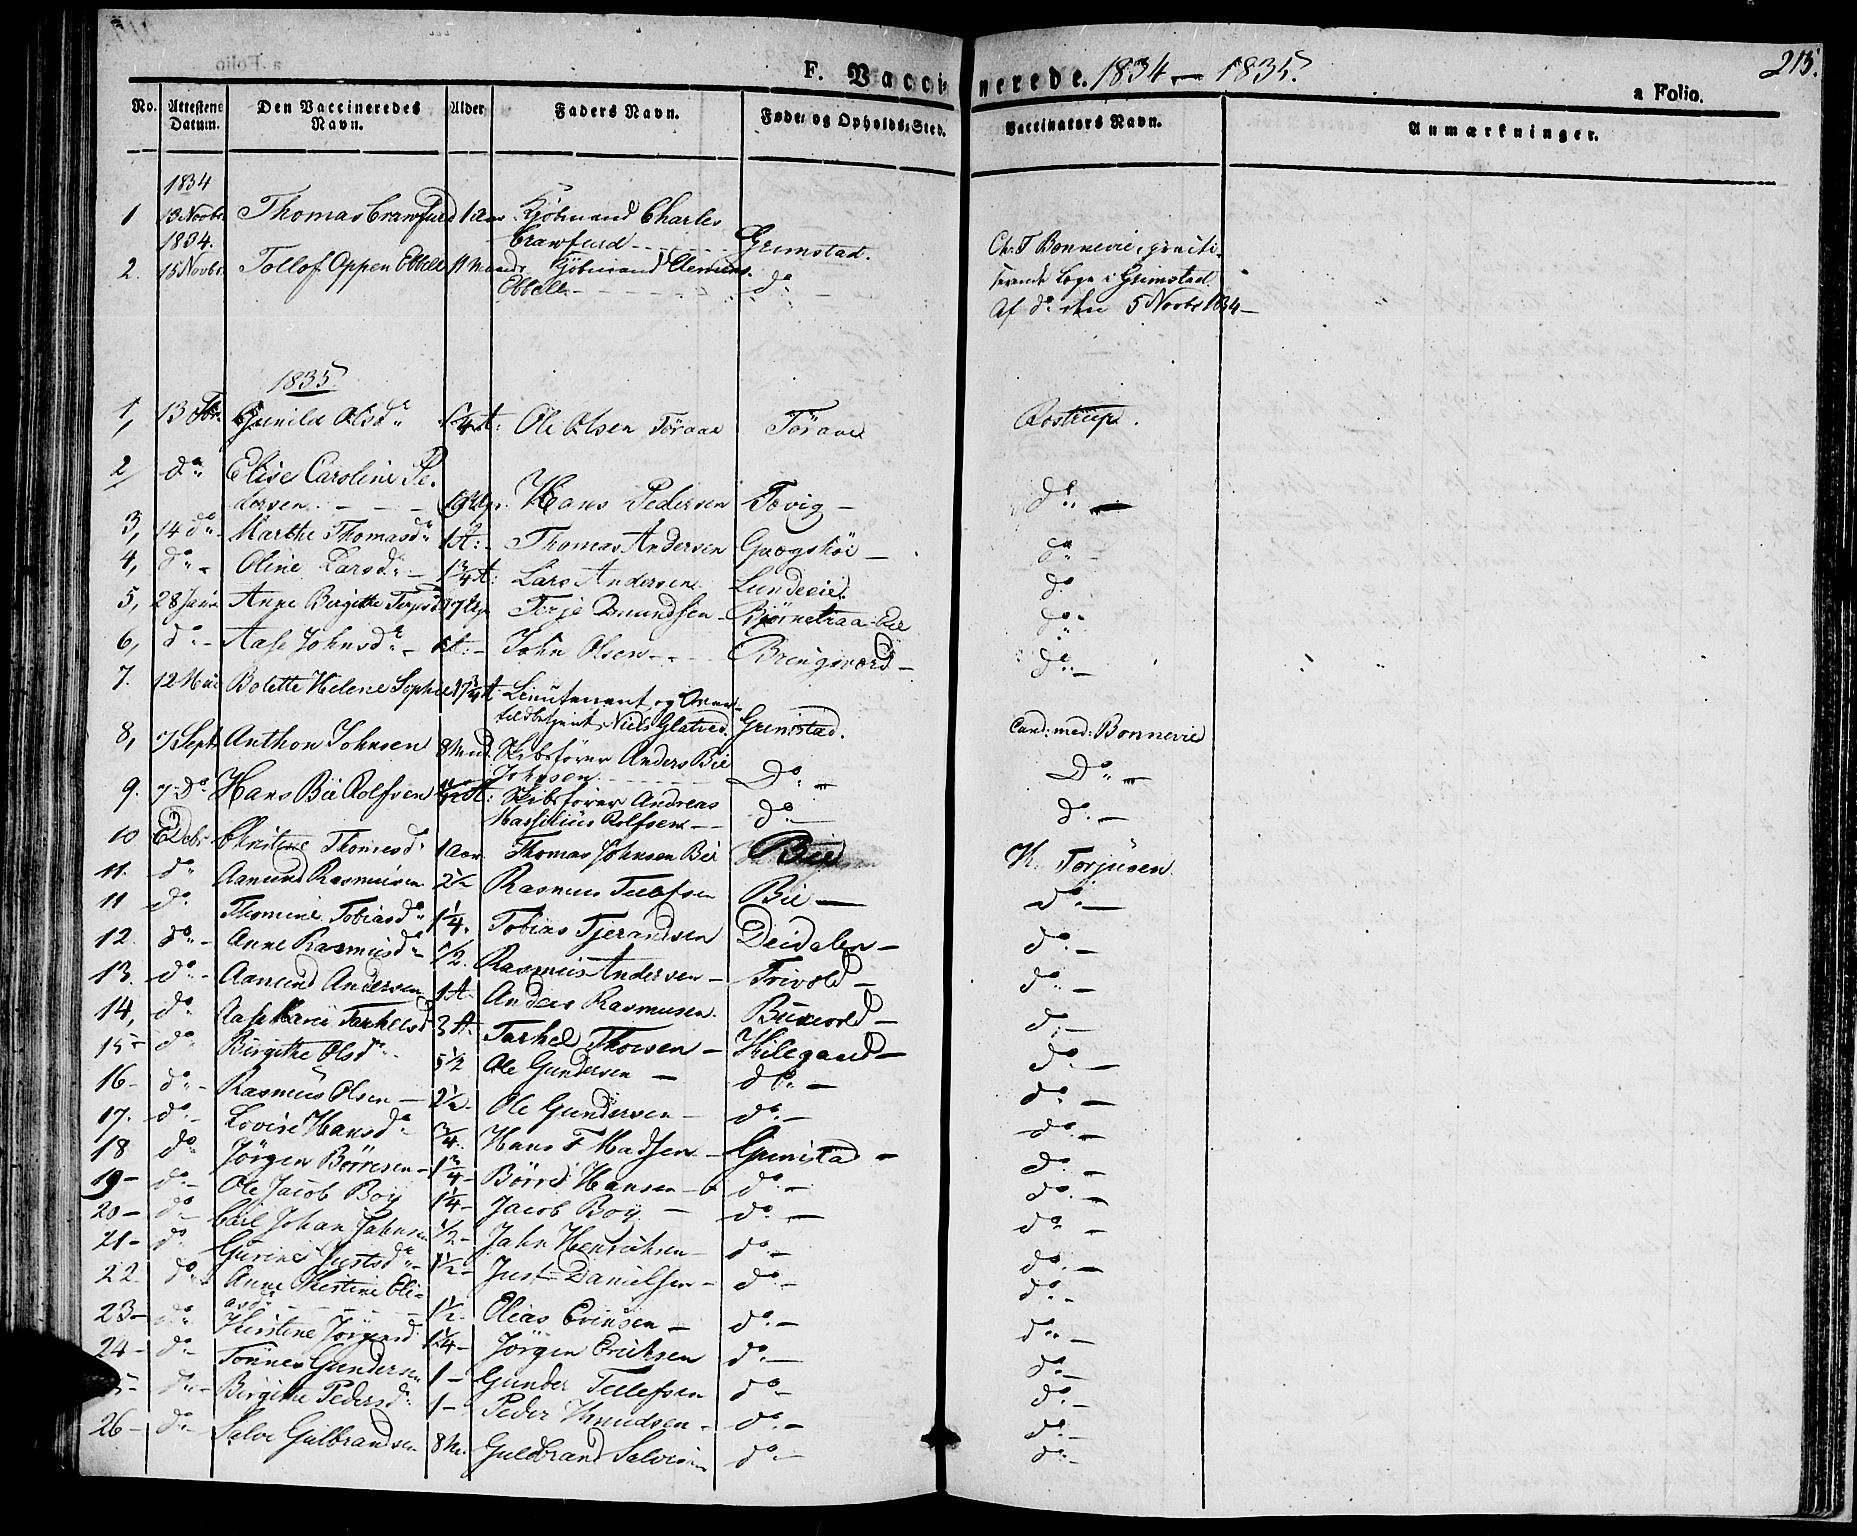 215.
F. Vaccinerede. 1834 — 1835.
a Folio.
No. Attestens Datum. Den Vaccineredes Navn. Alder Faders Navn. Føde- og Opholds-Sted. Vaccinators Navn. Anmærkninger.
1834
1 13 Novbr Thomas Crawfurd 1 Aar Kjöbmand Charles
Crawfurd - - - Grimstad. Chr. T Bonnevie, practi-
1834.
2. 15 Novbr. Tollof Oppen Ebbell 11 Kjöbmand Clemens
Ebbell - - - do - serende Læge i Grimstad
Af do den 5 Novbr 1834 —
1835
1, 13 Gunild Olsd. Ole Olsen Töraae Töraae Rostrup.
2 do Elise Caroline Pe-
dersen - - - Hans Pedersen Tevig - do -
3, 14 do Marthe Thomasd. 1 A: - Thomas Andersen - do -
4, do - Oline Larsd. - 1 3/4 A: Lars Andersen Lundeeie. do
5, 28 Anne Birgitte Terjesd 17 Terje Omundsen - do
6, do - Aase Johnsd. - A: - John Olsen - - Bringsværd - do -
7. 12 Mai Bolette Helene Sophie Lieutenant og
Niels Glatved. Grimstad. Cand: med: Bonnevie
8, 7 Sept Anthon Johnsen 8 Mnd. Skibsförer Anders Bie
Johnsen - - - Do - Do -
9. 7 do Hans Bie Rolfsen A: Skibsförer Andreas
Massilius Rolfsen - do - do -
10 Christine Thomasd. 1 Aar Thomas Johnsen Bie Bie K. Torjusen.
11. do Aanund Rasmusen 2 1/2 Rasmus Tellefsen Bie - do -
11 do Thomine Tobiasd. 1 1/4. Tobias Tjerandsen Deidalen - do -
12. do - Anne Rasmusd. - 1/2. Rasmus Andersen - Trivold - do -
13. do - Aanund Andersen 1 A. Anders Rasmusen. do -
14, do Aase Karie Tarkelsd 3 A. Tarkel Thorsen - Hilegaard - do -
15 - do Birgithe Olsd. - 5 1/2 Ole Gundersen - do - do -
16 - do - Rasmus Olsen - 2 1/2. Ole Gundersen - do - do -
17. do - Lovise Hansd. 3/4. Hans F Madsen - Grimstad - do -
18 do Jörgen Börresen - 1 3/4 - Börre Hansen - do - do -
19 - do - Ole Jacob Boÿ 1 1/4 - Jacob Boÿ - do - do -
20 - do - Carl Johan Jahnsen 1/2 - Jahn Henrichsen - do - do -
21 - do Gurine Justsd. - 1 1/2 - Just Danielsen - do - do -
22. do Anne Kirstine Eli-
asd. - - - 1 1/2. Elias Evensen - do - do -
23 - do Kirstine Jörgensd. 1 1/4 - Jörgen Erichsen do - do -
24 - do - Tönnes Gundersen 1 - Gunder Tellefsen do - do -
25 - do - Birgithe Pedersd. 1 - Peder Knudsen - do - do -
26 - do - Salve Gulbrandsen 8 M. Guldbrand Salvesen do - do -